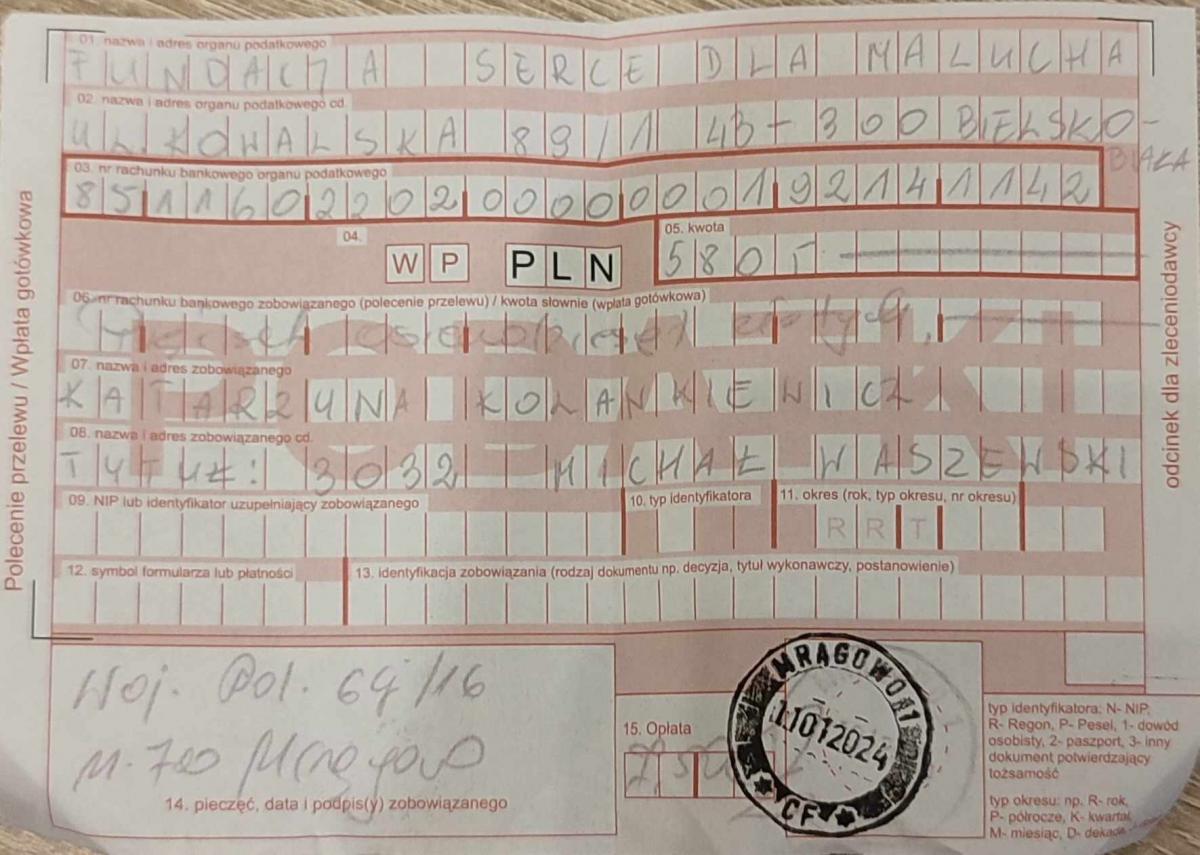 01. nazwa i adres organu podatkowego
FUNDACJA SERCE DLA MALUCHA
02. nazwa i adres organu podatkowego cd.
UL. KOWALSKA 89/1 43-300 BIELSKO-
BIAŁA
03. nr rachunku bankowego organu podatkowego
85 1160 2202 0000 0001 9214 1142
04.
W P PLN
05. kwota
580
06. nr rachunku bankowego zobowiązanego (polecenie przelewu) / kwota słownie (wpłata gotówkowa)
Pięćset osiemdziesiąt złotych.
PODATKI
07. nazwa i adres zobowiązanego
KATARZYNA KOLANKIEWICZ
08. nazwa i adres zobowiązanego cd.
TYTUŁ: 3032 MICHAŁ WASZEWSKI
09. NIP lub identyfikator uzupełniający zobowiązanego
10. typ identyfikatora
11. okres (rok, typ okresu, nr okresu)
R R T
12. symbol formularza lub płatności
13. identyfikacja zobowiązania (rodzaj dokumentu np. decyzja, tytuł wykonawczy, postanowienie)
Woj. Pol. 6g/16
11-700 Mrągowo
14. pieczęć, data i podpis(y) zobowiązanego
15. Opłata
MRĄGOWO 1
11012024
CF
typ identyfikatora: N- NIP,
R- Regon, P- Pesel, 1- dowód
osobisty, 2- paszport, 3- inny
dokument potwierdzający
tożsamość
typ okresu: np. R- rok,
P- półrocze, K- kwartał,
M- miesiąc, D- dekada
Polecenie przelewu / Wpłata gotówkowa
odcinek dla zleceniodawcy